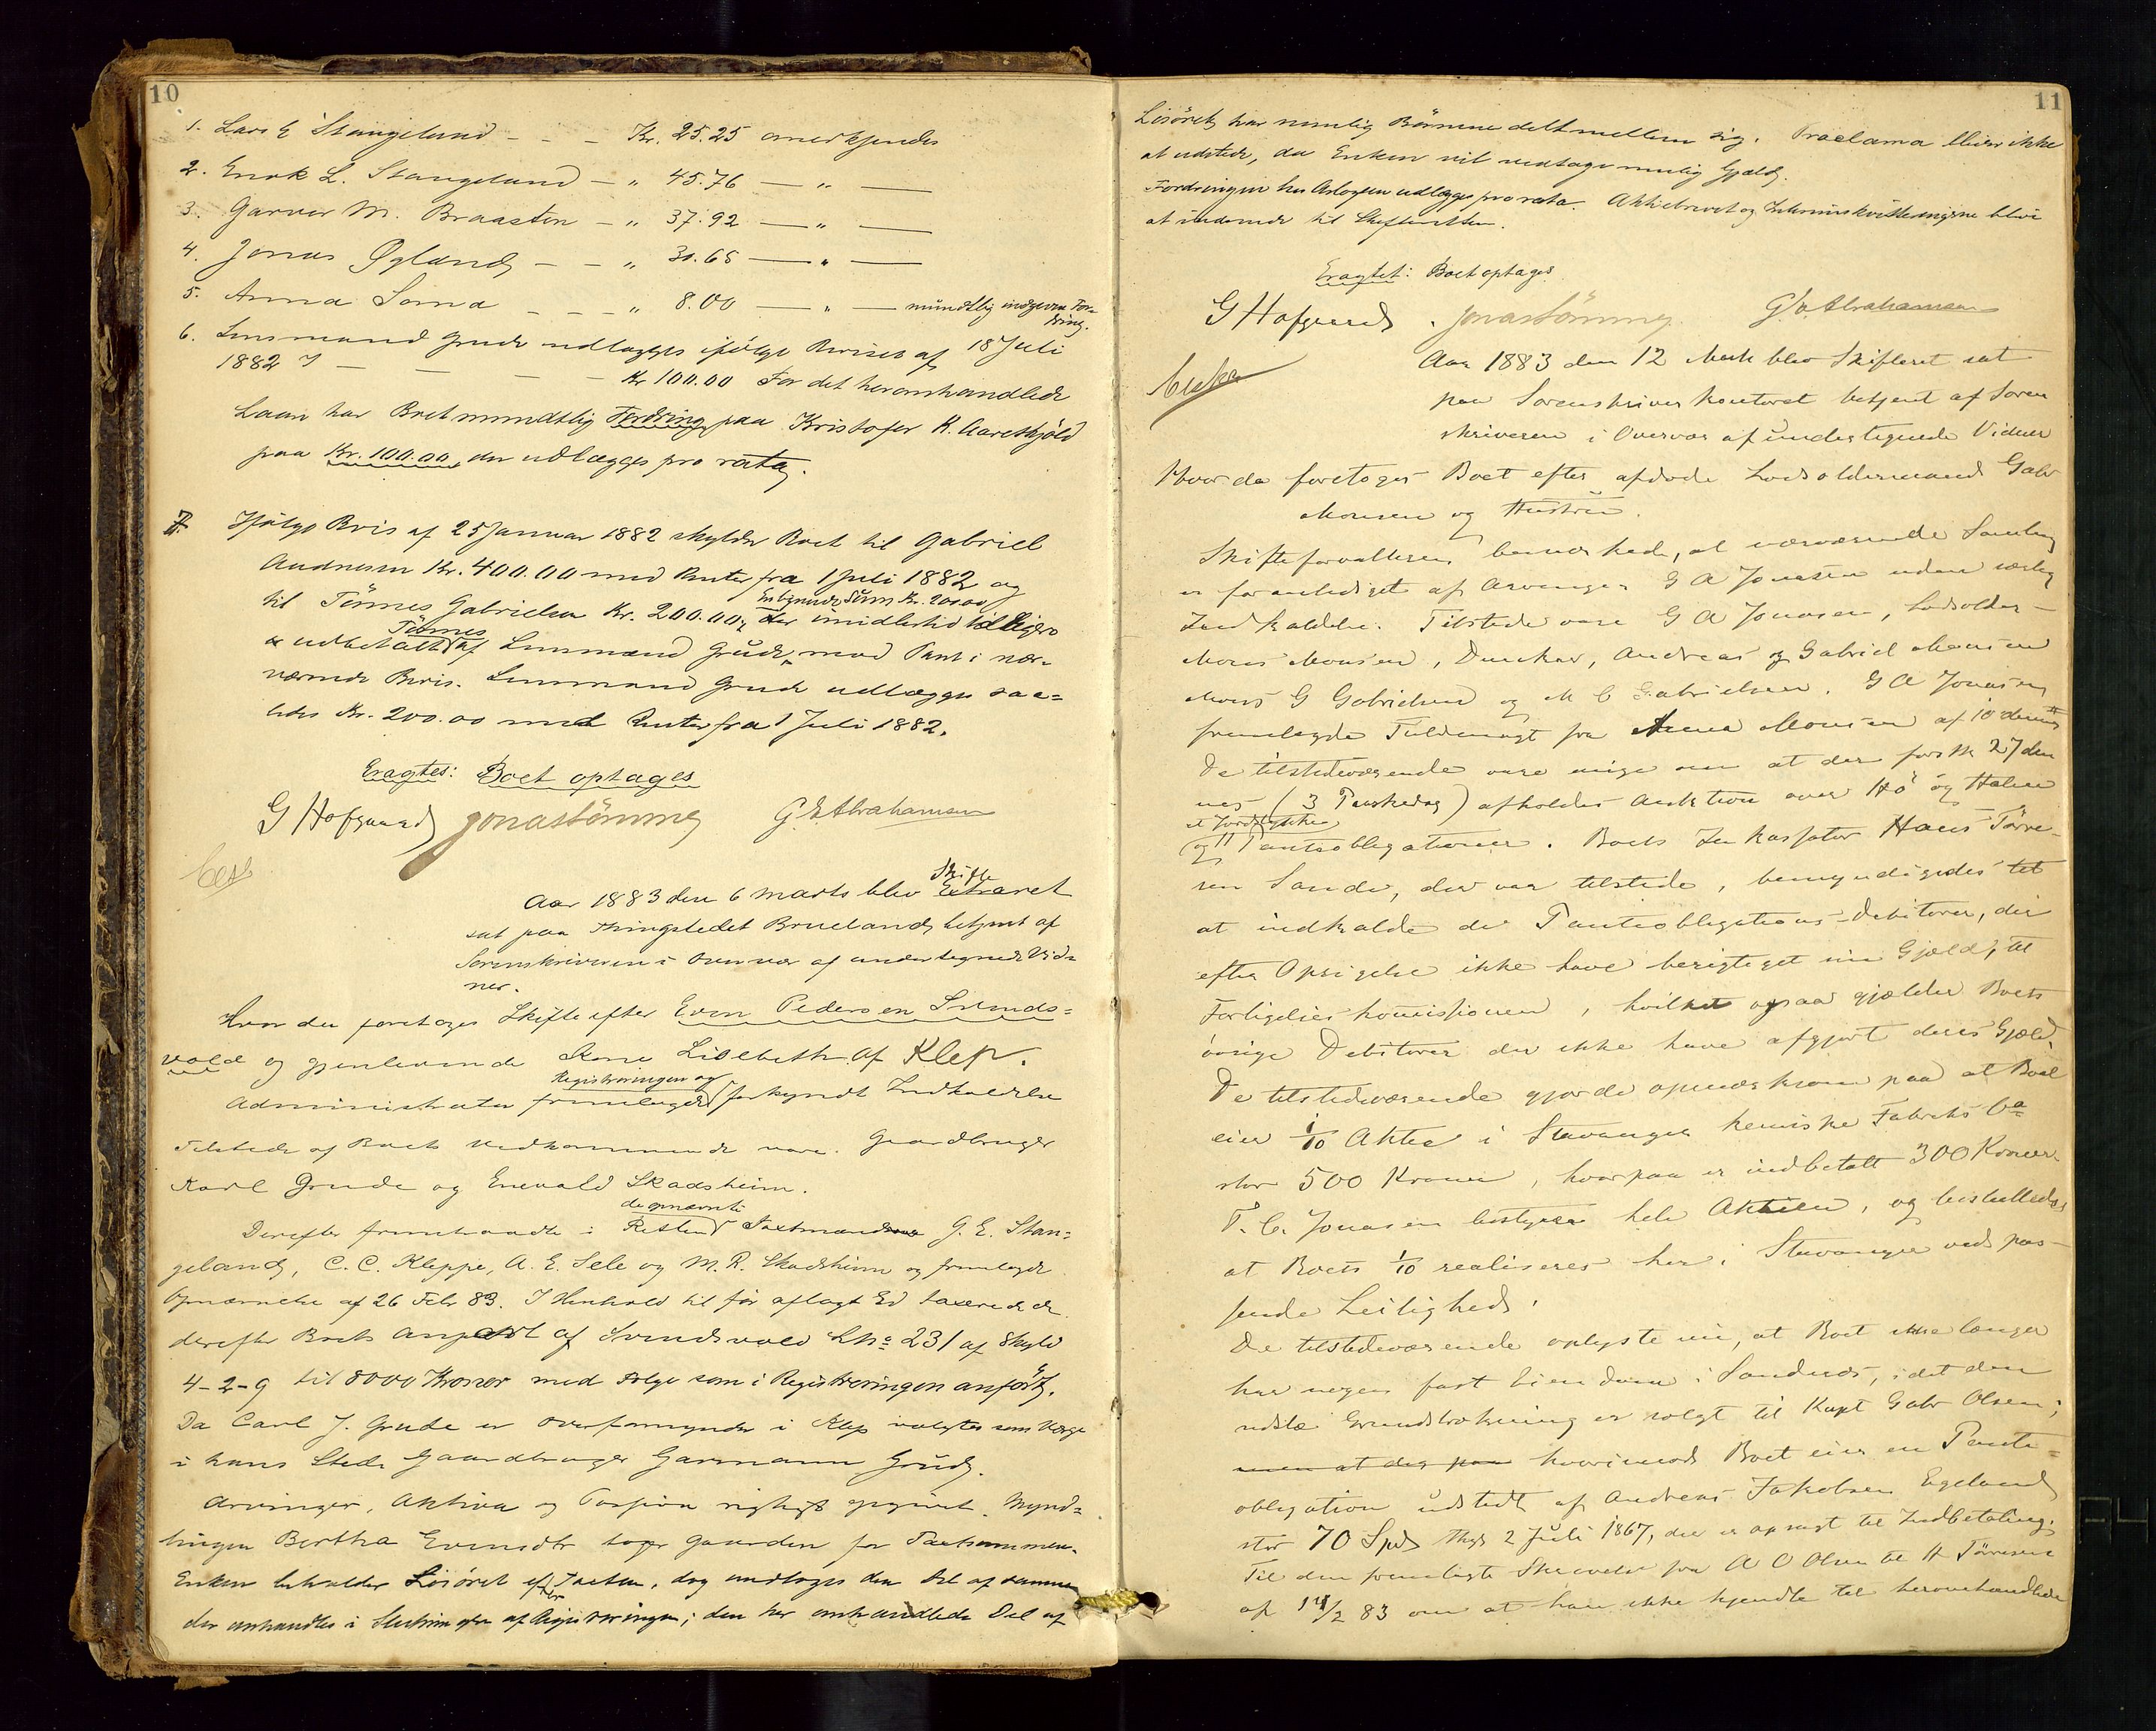 10
1. Lars E Stangeland - - - Kr. 25.25 anerkjendes
2. Enok L. Stangeland - " 45.76 — " —
3. Garver M. Braasten - " 37.92 — " —
4. Jonas Øgland - - " 30.65 — " —
5. Anna Soma - - - " 8.00 — " — mündtlig indgiven For-
dring.
6. Lensmand Grude udlægges ifølge Bevises af 18 Juli
1882 — — — — Kr 100.00 For det heromhandlede
Laan har Boet mundtlig Fordring paa Kristofer K. Aareskjold
paa Kr. 100.00, der udlægges pro rata.
7. Ifølge Bevis af 25 Januar 1882 skylder Boet til Gabriel
Audnesen Kr. 400.00 med Renter fra 1 Juli 1882 og
til Tönnes Gabrielsen Kr. 200.00, der imidlertid tidligere
er udbetalt Tönnes af Lensmand Grude, mod Pant i nær-
værende Bevis. Lensmand Grude udlægges saa=
ledes Kr. 200.00 med Renter fra 1 Juli 1882.
Eragtes: Boet optages
G Hofgaard Jonas Tömmeg G. E. Abrahamsen
Aar 1883 den 6 Marts blev Skifteret
sat paa Thingstedet Brueland, betjent af
Sorenskriveren i Overvær af undertegnede Vid-
ner.
Hvor da foretoges Skifte efter Even Pedersen Svends=
vold og gjenlevende Kone Lisebeth af Klep.
Administrator fremlagde Registreringen og forkyndt Indkaldelse
Tilstede af Boets Vedkommende vare. Gaardbruger
Karl Grude og Enevald Skadsheim.
Derefter fremstoede i Retten de opnævnte Taxtmænd G. E. Stan=
geland, C. C. Kleppe, A. E. Sele og M. R. Skadsheim og fremlagde
Opnævnelse af 26 Febr 83. I Henhold til før aflagt Ed taxerede de
derefter Boets Anpart af Svendsvold LNo 231 af Skyld
4-2-9 til 8000 Kroner med Følge som i Registreringen anført.
Da Carl J. Grude er Overformynder i Klep valgtes som Værge
i hans Sted Gaardbruger Garmann Grude.
Arvinger, Aktiva og Passiva rigtigt opgivet. Mynd=
lingen Bertha Evensdtr tager Gaarden for Taxtsummen.
Enken beholder Løsøret efter Taxten, dog undtages den Del af samme
der omhandles i Slutningen af Registreringen; den her omhandlede Del af
11
Løsøret har nemlig Børnene delt mellem sig. Proclama bliver ikke
at udstede, da Enken vil vedtage mulig Gjæld.
Fordringen hos Aslogsen udlægges pro rata. Aktiebrevet og Interimskvitteringerne blive
at indsende til Skifteretten.
Eragtet: Boet optages.
G Hofgaard. Jonas Tömmeg. G. E. Abrahamsen
Aar 1883 den 12 Marts blev Skifteret sat
paa Sorenskriverkontoret betjent af Soren
skriveren i Overvær af undertegnede Vidner
Hvor da foretoges Boet efter afdøde Lodsoldermand Gabr
Monsen og Hustru.
Skifteforvalteren bemærkede, at nærværende Samling
er foranlediget af Arvingen G A Jonasen uden særlig
Indkaldelse. Tilstede vare G A Jonasen, Lodsolder-
Mons Monsen, Duncker, Andreas og Gabriel Monsen
Mons G Gabrielsen og M C Gabrielsen. G A Jonasen
fremlagde Fuldmagt fra Anna Monsen af 10 dennes
De tilstedeværende vare enige om at der førstk 27 den
nes (3 Paaskedag) afholdes Auktion over Hø og Halm
og Pantobligationer. Boets Inkassator Hans Tørre-
sen Sande, der var tilstede, bemyndigedes til
at indkalde de Pantobligations-Debitorer, der
efter Opsigelse ikke have berigtiget sin Gjæld, til
Forligelseskomissionen, hvilket ogsaa gjælder Boets
øvrige Debitorer der ikke have afgjort deres Gjæld.
De tilstedeværende gjorde opmærksom paa at Boet
eier 1/10 Aktie i Stavanger kemiske Fabriks Co
stor 500 Kroner, hvorpaa er indbetalt 300 Kroner.
T. C. Jonasen bestyrer hele Aktien, og besluttedes
at Boets 1/10 realiseres her i Stavanger ved pas-
sende Leilighed.
De tilstedeværende oplyste nu, at Boet ikke længer
har nogen fast Eiendom i Sandnes, idet den
udslæ Grundstrækning er solgt til Kapt Gabr Olsen;
men at der paa hvorimod Boet eier en Pante=
obligation udstedt af Andreas Jakobsen Egeland
stor 70 Spd thgl 2 Juli 1867, der er opsagt til Indbetaling.
Til den fremlagte Skrivelse fra A O Olsen til H Tørresen
af 14/2 83 om at han ikke kjendte til heromhandlede